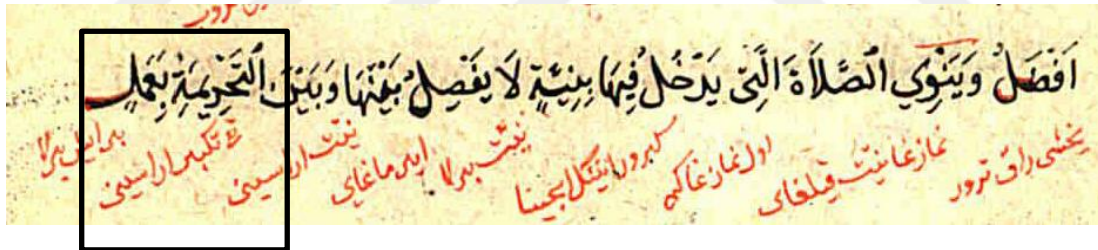 اَفْضَلُ وَيَنْوِي الصَّلَاةَ الَّتِي يَدْخُلُ فِيهَا بِنِيَّةٍ لَا يَفْصِلُ بَيْنَهَا وَبَيْنَ التَّحْرِيمَةِ بِعَمَلٍ
يخشى راق ترور نمازغا نيت قيلغاى اول نمازغا كه كيرور انينك ايچينا نيت بيرلا ايرماغاى نيت اراسينى تكبير اراسينى